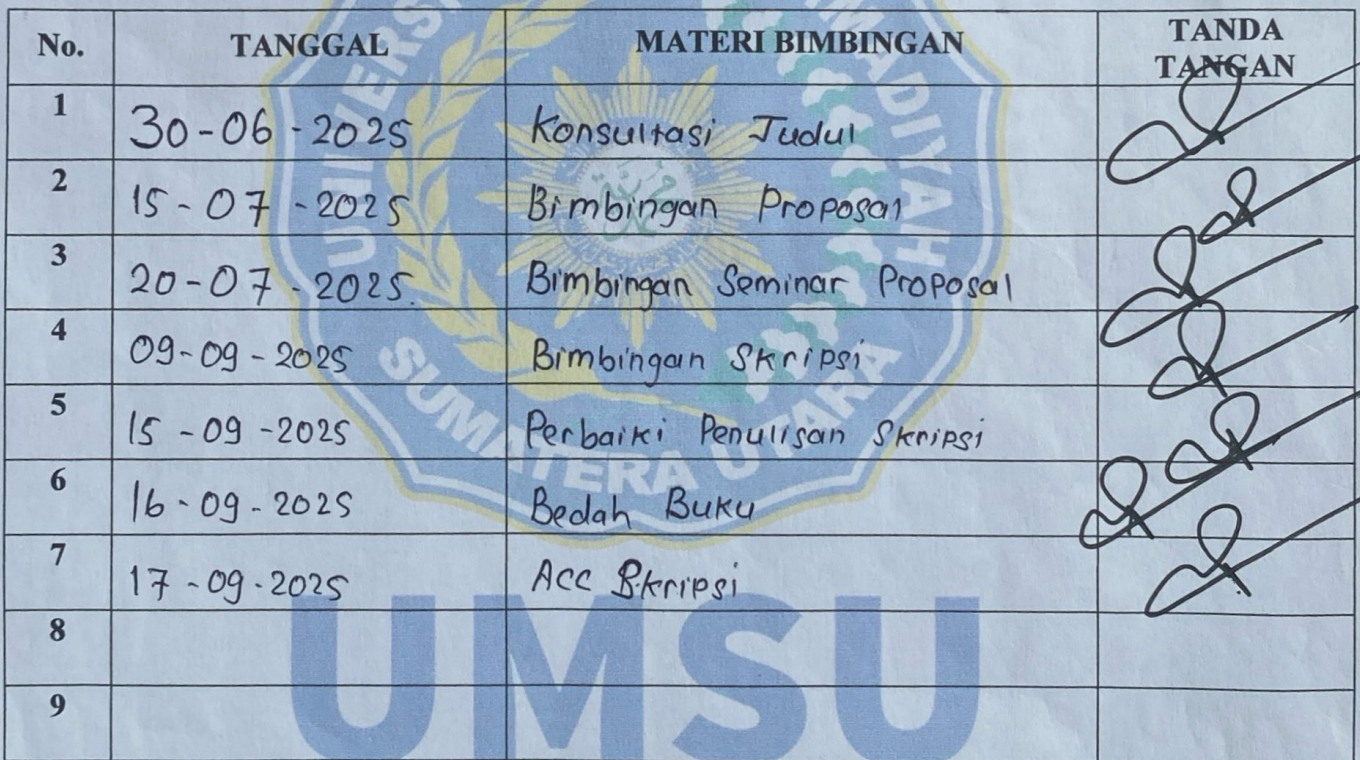 No. TANGGAL MATERI BIMBINGAN TANDA TANGAN
1 30-06-2025 Konsultasi Judul
2 15-07-2025 Bimbingan Proposal
3 20-07-2025. Bimbingan Seminar Proposal
4 09-09-2025 Bimbingan Skripsi
5 15-09-2025 Perbaiki Penulisan Skripsi
6 16-09-2025 Bedah Buku
7 17-09-2025 Acc Skripsi
8
9
SUMATERA UTARA
UMSU